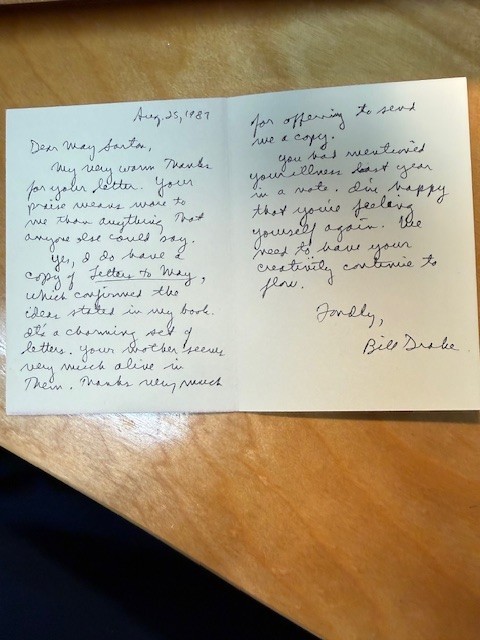 Aug. 25, 1987
Dear May Sarton,
My very warm thanks
for your letter. Your
praise means more to
me than anything that
anyone else could say.
Yes, I do have a
copy of Letters to May,
which confirmed the
ideas stated in my book.
It's a charming set of
letters. Your mother seems
very much alive in
them. Thanks very much
for offering to send
me a copy.
You had mentioned
your illness last year
in a note. I'm happy
that you're feeling
yourself again. We
need to have your
creativity continue to
flow.
Fondly,
Bill Drake